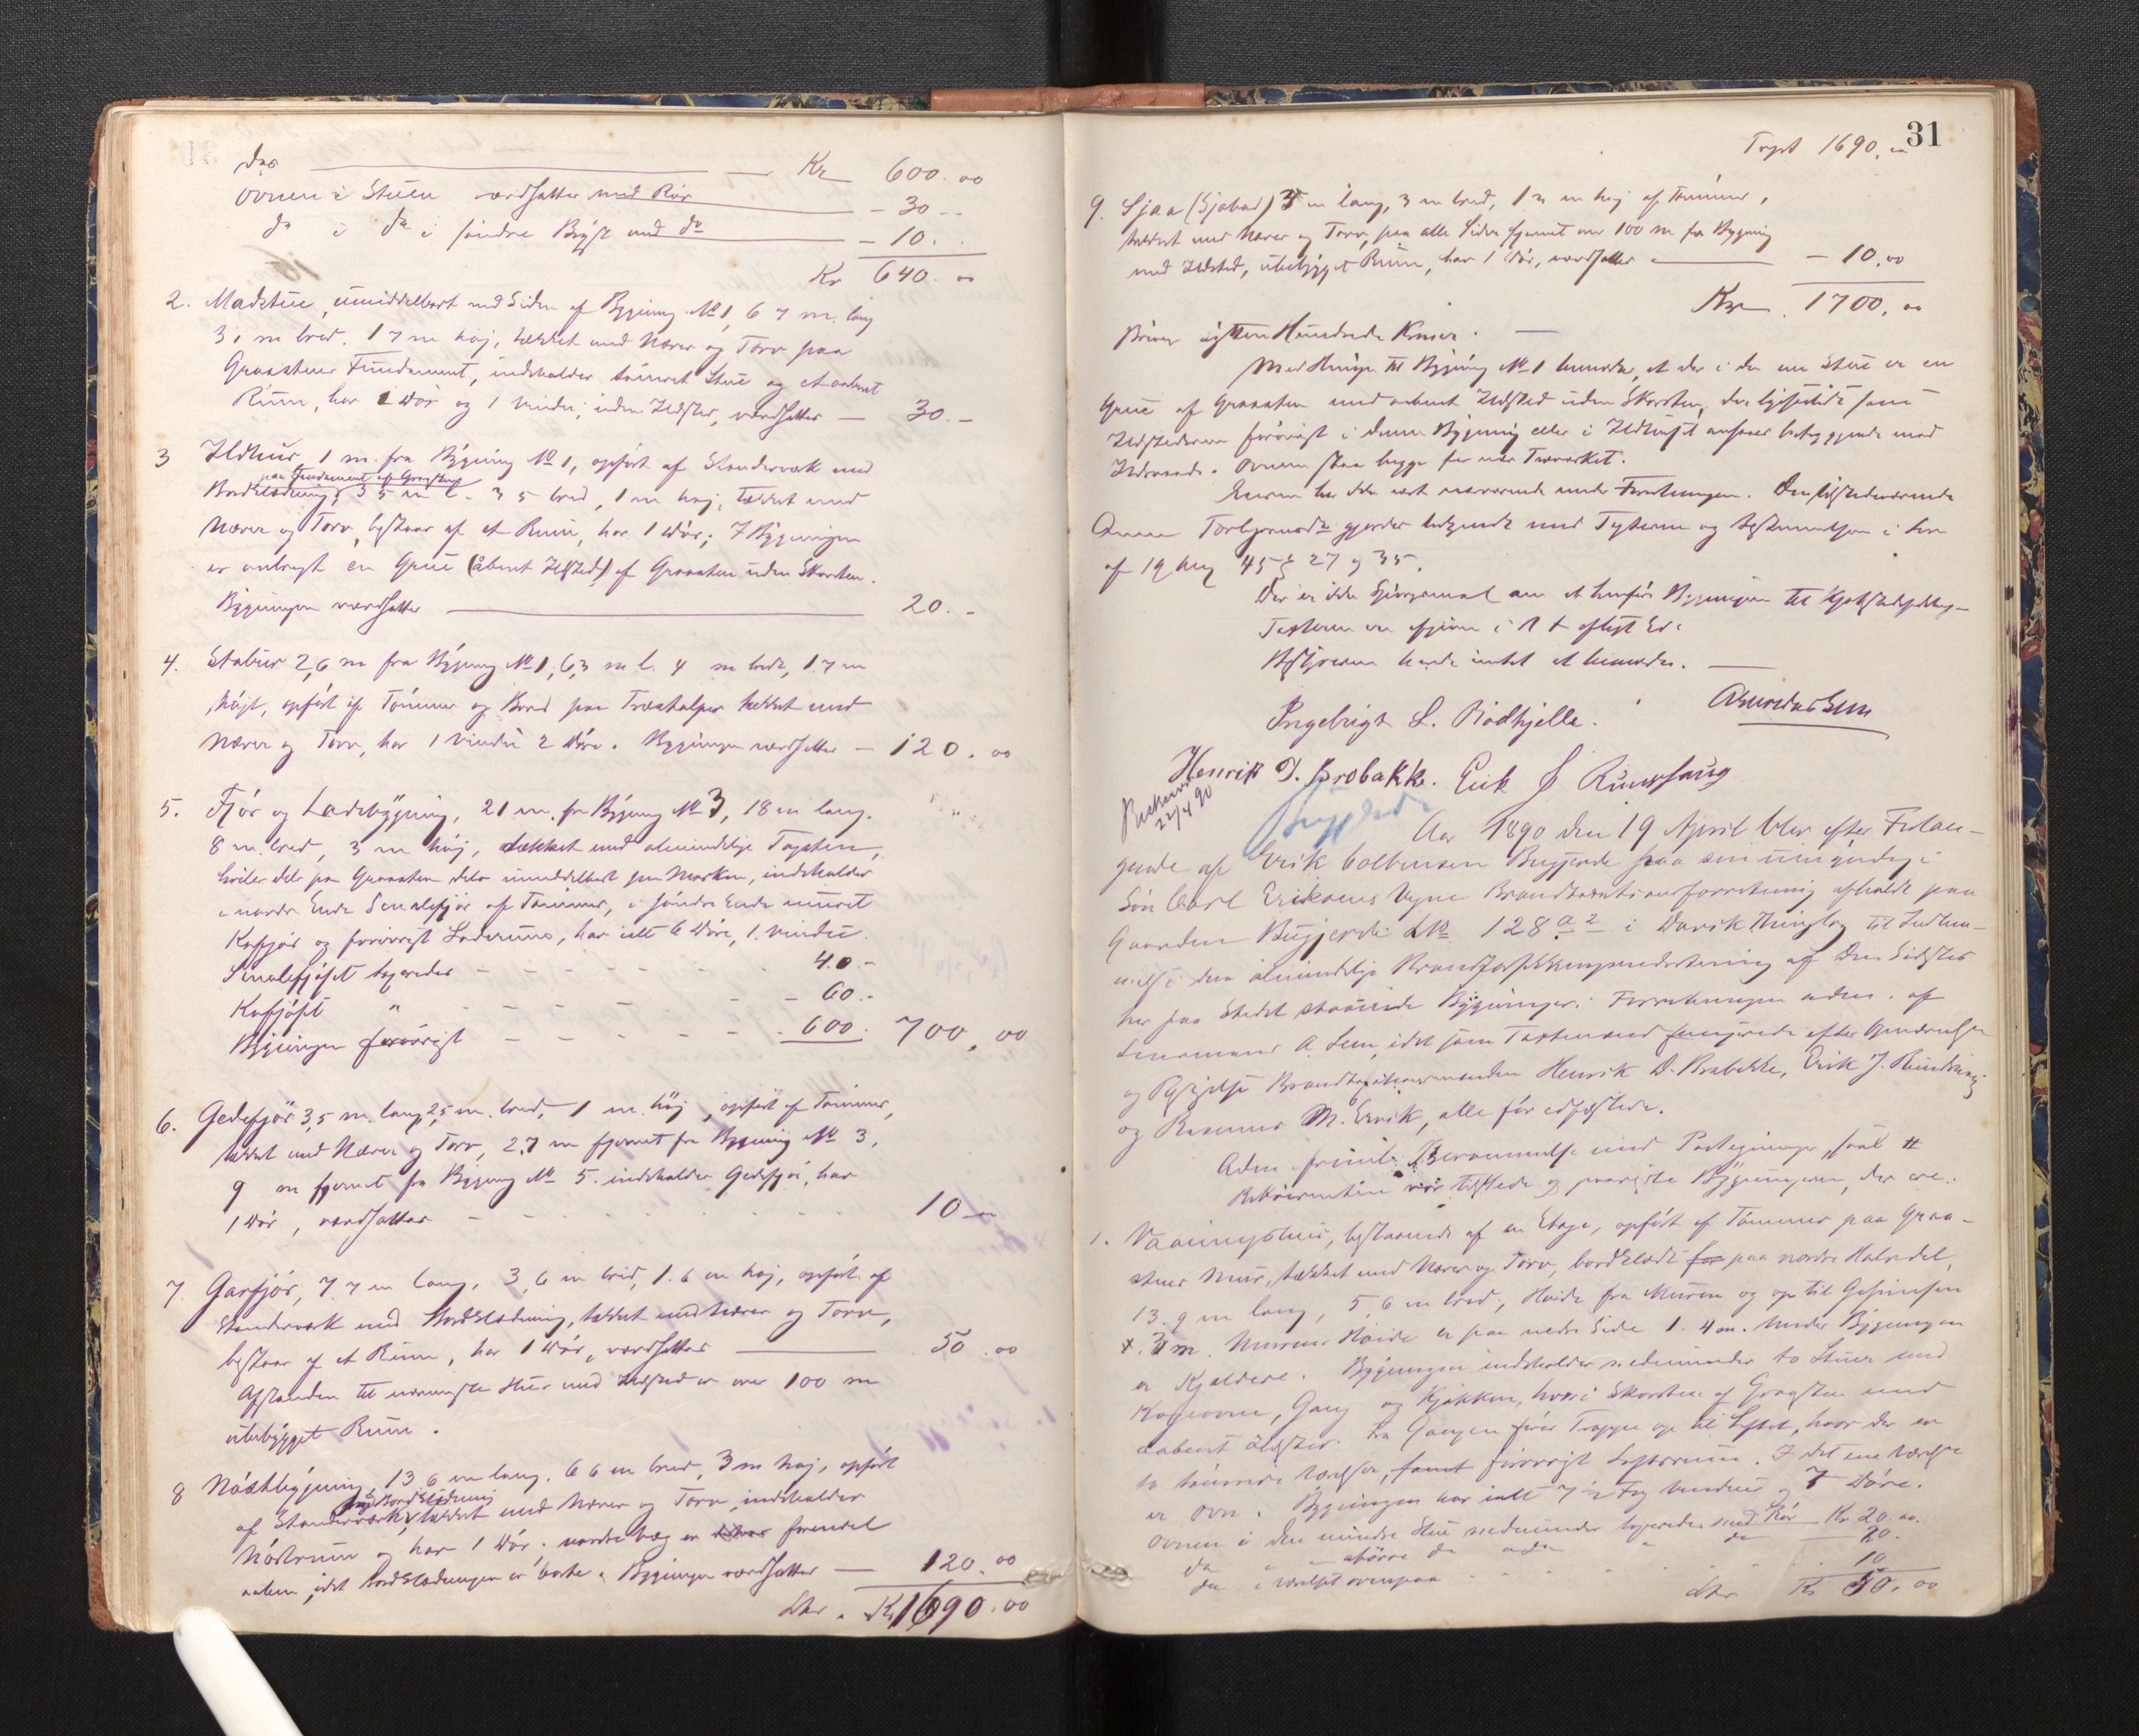 do Kr 600.00
Ovnen i Stuen værdsættes med Rør - 30 - -
do i do i søndre Bygn med do - 10.
Kr 640.00
2. Madstue, umiddelbart ved Siden af Bygning No 1, 6 7 m. lang
31 m bred. 17 m høj, tækket med Næver og Torv paa
Graastens Fundament, indeholder tømret Stue og et aabent
Rum, har 1 Dør og 1 Vindu, uden Ildsted, værdsættes — 30.-
3 Ildhus, 1 m. fra Bygning No 1, opført af Stenderværk med
paa Fundament af Graasten
Bordklædning, 3 5 m l. 3 5 bred, 1 m høj, tækket med
Næver og Torv, bestaar af et Rum, har 1 Dør; I Bygningen
er anbragt en Grue (åbent Ildsted) af Graasten uden Skorsten.
Bygningen værdsættes 20.-
4. Stabur 2,6 m fra Bygning No 1, 6,3 m l. 4 m bredt, 1.7 m
højt, opført af Tømmer og Bord paa Træstolper tækket med
Næver og Torv, har 1 Vindu 2 Døre. Bygningen værdsættes — 120.00
5. Fjøs og Ladebygning, 21 m. fra Bygning No 3, 18 m lang.
8 m. bred, 3 m høj, tækket med almindelige Tagsten,
hviler dels paa Graasten dels umiddelbart paa Marken, indeholder
i nordre Ende Smalefjøs af Tømmer, i søndre Ende muret
Kofjøs og forøvrigt Laderum, har ialt 6 Døre, 1. Vindu.
Smalefjøset taxeredes - - - - - - 40.-
Kofjøset " - - - - - - 60.-
Bygningen forøvrigt - - - - - 600. 700,00
6. Gedefjøs 3,5 m. lang 2,5 m. bred, 1 m. høj, opført af Tømmer,
tækket med Næver og Torv, 2,7 m fjernet fra Bygning No 3,
9 m fjernet fra Bygning No 5. indeholder Gedefjøs, har
1 Dør, værdsættes - - - - - 10 —
7. Garfjøs, 7.7 m lang, 3,6 m bred, 1.6 m høj, opført af
Stenderværk med Bordklædning, tækket med Næver og Torv,
bestaar af et Rum, har 1 Dør, værdsættes 50.00
Afstanden til nærmeste Hus med Ildsted er over 100 m
ubebygget Rum.
8 Nøstbygning, 13 6 m lang. 6 6 m bred, 3 m høj, opført
med Bordklædning
af Stenderværk, tækket med Næver og Torv indeholder
Nøstrum og har 1 Dør. nordre Væg er forendel
aaben, idet Bordklædningen er borte. Bygningen værdsættes — 120.00
Lbr. Kr 1690.00
31
Trpt 1690,00
9. Sjaa (Sjøbod) 3 m lang, 3 m bred, 1 m høj af Tømmer,
tækket med Næver og Torv, paa alle Sider fjernet over 100 m fra Bygning
med Ildsted, ubebygget Rum, har 1 Dør, værdsættes — 10,00
Kr 1700,00
Skriver sytten Hundrede Kroner. —
Med Hensyn til Bygning No 1 bemærkes, at der i den ene Stue er en
Grue af Graasten med aabent Ildsted uden Skorsten, der ligesaavel som
Ildstederne forøvrigt i denne Bygning eller i Ildhuset ansees betryggende mod
Ildsvaade. Ovnene staa begge for nær Træværket.
Eieren har ikke været nærværende under Forretningen. Den tilstedeværende
Torbjørnsdtr gjordes bekjendt med Taxterne og Bestemmelsen i Lov
af 19 Aug 45 § 27 og 35.
Der er ikke Spørgsmaal om at henføre Bygningen til
Taxterne ere afgivne i
havde intet at bemærke. —
Ingebrigt L. Rødhjelle. ASem
Henrik D. Brobakke. Erik J Rundhaug
22/4 90
Aar 1890 den 19 April blev efter Forlan-
gende af Erik Colbensen Bugjerde paa sin umyndige
Søn Carl Eriksens Vegne Brandtaxtionsforretning afholdt paa
Gaarden Bugjerde LNo 128 a 2 i Davik Thinglag til Indlem-
melse i den almindelige Brandforsikringsindretning af Den Sidstes
her paa Stedet staaende Bygninger. Forretningen adm. af
Lensmand A. Sem, idet som Taxtmænd fungerede efter Opnævnelse
og Brandtaxtionsmændene Henrik D. Brobakke, Erik J. Rundhaug
og Rasmus M. Ervik, alle før edfæstede.
Adm. freml. Berammelse med Paategninger, saal #
Rekvirenten var tilstede og paaviste Bygningerne, der ere:
1. Vaaningshus, bestaaende af en Etage, opført af Tømmer paa Graa-
stens Mur, tækket med Næver og Torv, bordklædt for paa nordre Halvdel,
13.9 m lang, 5,6 m bred, Høide fra Muren og op til Gesimsen
3 m. Murens Høide er paa nedre Side 1.4 m. Under Bygningen
er Kjældere. Bygningen indeholder nedenunder to Stuer med
Kogeovne, Gang og Kjøkken, hvori Skorsten af Graasten med
aabent Ildsted. Fra Gangen fører Trappe op til Loftet, hvor der er
to tømrede Værelser, samt forøvrigt Loftsrum. I det ene Værelse
er Ovn. Bygningen har ialt 7 1/2 Fag Vinduer og 7 Døre.
Ovnen i den mindre Stue nedenunder taxeredes med Rør Kr 20.00.
do " - større do do " do 20.
do i Værelset ovenpaa - - - 10
Lbr Kr 50.00